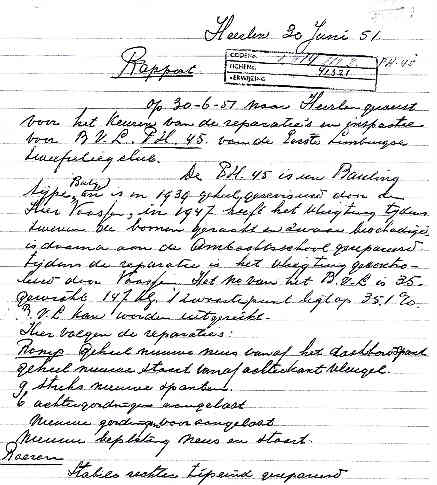 Heerlen 30 Juni 51.
CODENO.
TICHENO. 41321
VERWIJZING
PH. 45
Rapport.
Op 30-6-51 naar Heerlen geweest
voor het keuren van de reparatie's en inspectie
voor B.V.L. PH. 45. van de Eerste Limburgse
Zweefvliegclub.
De PH. 45 is een
type, en is in 1939 geheel gereviseerd door de
Heer in 1947 heeft het vliegtuig tijdens
zweven de bomen geraakt en zwaar beschadigd
is daarna aan de Ambachtsschool gerepareerd
tijdens de reparatie is het vliegtuig gecontro-
leerd door Het no van het B.V.L is 35.
gewicht 147 kg. zwaartepunt ligt op 35.1 %.
B.V.L kan worden uitgereikt.
Hier volgen de reparaties:
Romp Geheel nieuwe neus vanaf het dashboord
geheel nieuwe staart vanaf achterkant vleugel.
9 stuks nieuwe spanten.
6 achtergordingen aangelast
Nieuwe gording voor aangelast
Nieuwe beplating neus en staart.
Roeren
Stabilo rechter tipeind gerepareerd